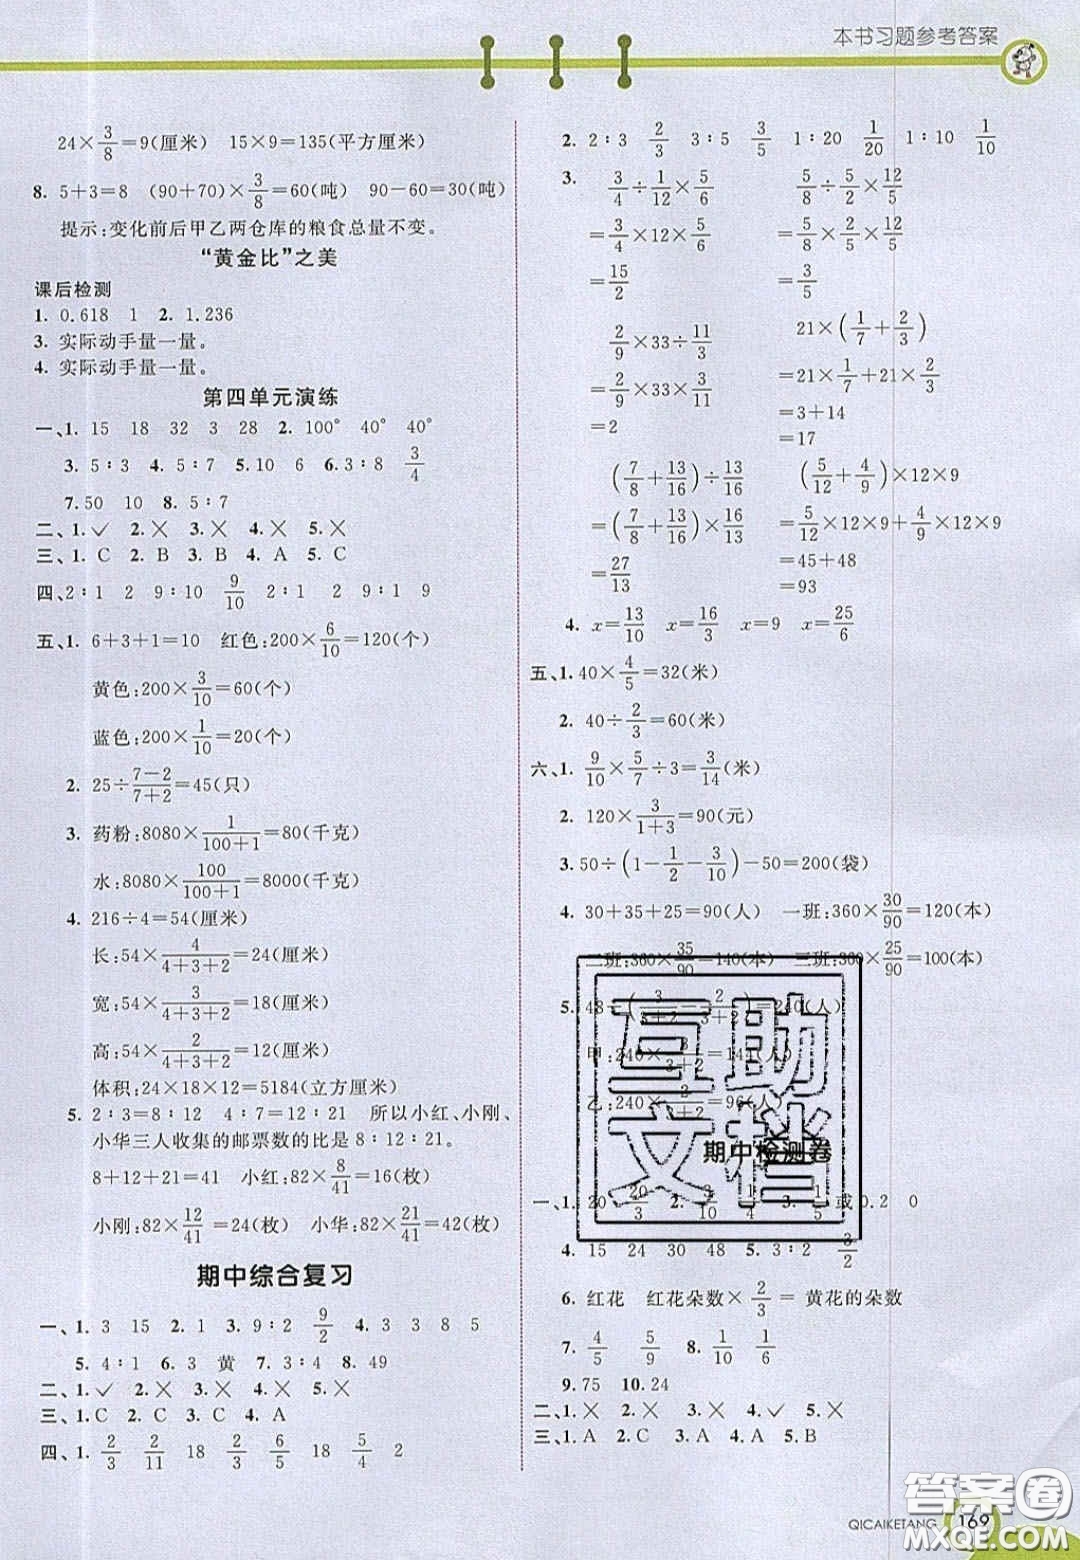 本书习题参考答案
24×3/8=9(厘米) 15×9=135(平方厘米)
8. 5+3=8 (90+70)×3/8=60(吨) 90-60=30(吨)
提示:变化前后甲乙两仓库的粮食总量不变。
“黄金比”之美
课后检测
1. 0.618 1 2. 1.236
3. 实际动手量一量。
4. 实际动手量一量。
第四单元演练
一、1. 15 18 32 3 28 2. 100° 40° 40°
3. 5∶3 4. 5∶7 5. 10 6 6. 3∶8 3/4
7. 50 10 8. 5∶7
二、1. ✓ 2. ✕ 3. ✕ 4. ✕ 5. ✕
三、1. C 2. B 3. B 4. A 5. C
四、2∶1 2 9∶10 9/10 2∶1 2 9∶1 9
五、1. 6+3+1=10 红色:200×6/10=120(个)
黄色:200×3/10=60(个)
蓝色:200×1/10=20(个)
2. 25÷(7-2)/(7+2)=45(只)
3. 药粉:8080×1/(100+1)=80(千克)
水:8080×100/(100+1)=8000(千克)
4. 216÷4=54(厘米)
长:54×4/(4+3+2)=24(厘米)
宽:54×3/(4+3+2)=18(厘米)
高:54×2/(4+3+2)=12(厘米)
体积:24×18×12=5184(立方厘米)
5. 2∶3=8∶12 4∶7=12∶21 所以小红、小刚、
小华三人收集的邮票数的比是8∶12∶21。
8+12+21=41 小红:82×8/41=16(枚)
小刚:82×12/41=24(枚) 小华:82×21/41=42(枚)
期中综合复习
一、1. 3 15 2. 1 3. 9∶2 9/2 4. 3 3 8 5
5. 4∶1 6. 3 黄 7. 3∶4 8. 49
二、1. ✓ 2. ✕ 3. ✕ 4. ✕ 5. ✕
三、1. C 2. C 3. C 4. A
四、1. 2/3 2/11 18 2/3 1/6 18 5/4 2
2. 2∶3 2/3 3∶5 3/5 1∶20 1/20 1∶10 1/10
3. 3/4÷1/12×5/6 5/8÷5/2×12/5
=3/4×12×5/6 =5/8×2/5×12/5
=15/2 =3/5
2/9×33÷11/3 21×(1/7+2/3)
=2/9×33×3/11 =21×1/7+21×2/3
=2 =3+14
=17
(7/8+13/16)÷13/16 (5/12+4/9)×12×9
=(7/8+13/16)×16/13 =5/12×12×9+4/9×12×9
=27/13 =45+48
=93
4. x=13/10 x=16/3 x=9 x=25/6
五、1. 40×4/5=32(米)
2. 40÷2/3=60(米)
六、1. 9/10×5/7÷3=3/14(米)
2. 120×3/(1+3)=90(元)
3. 50÷(1-1/2-3/10)-50=200(袋)
4. 30+35+25=90(人) 一班:360×30/90=120(本)
二班:360×35/90=140(本) 三班:360×25/90=100(本)
5. 48÷(3/(3+2)-2/(3+2))=240(人)
甲:240×3/(3+2)=144(人)
乙:240×2/(3+2)=96(人)
互助文档
期中检测卷
一、1. 20 20/3 2. 3/10 1/4 3. 1/5或0.2 0
4. 15 24 30 48 5. 3∶2 3/2
6. 红花 红花朵数×2/3=黄花的朵数
7. 4/5 5/9 8. 1/10 1/6
9. 75 10. 24
二、1. ✕ 2. ✕ 3. ✕ 4. ✓ 5. ✕
三、1. A 2. C 3. A 4. A 5. B
QICAIKETANG 169
答案圈
MXQE.COM